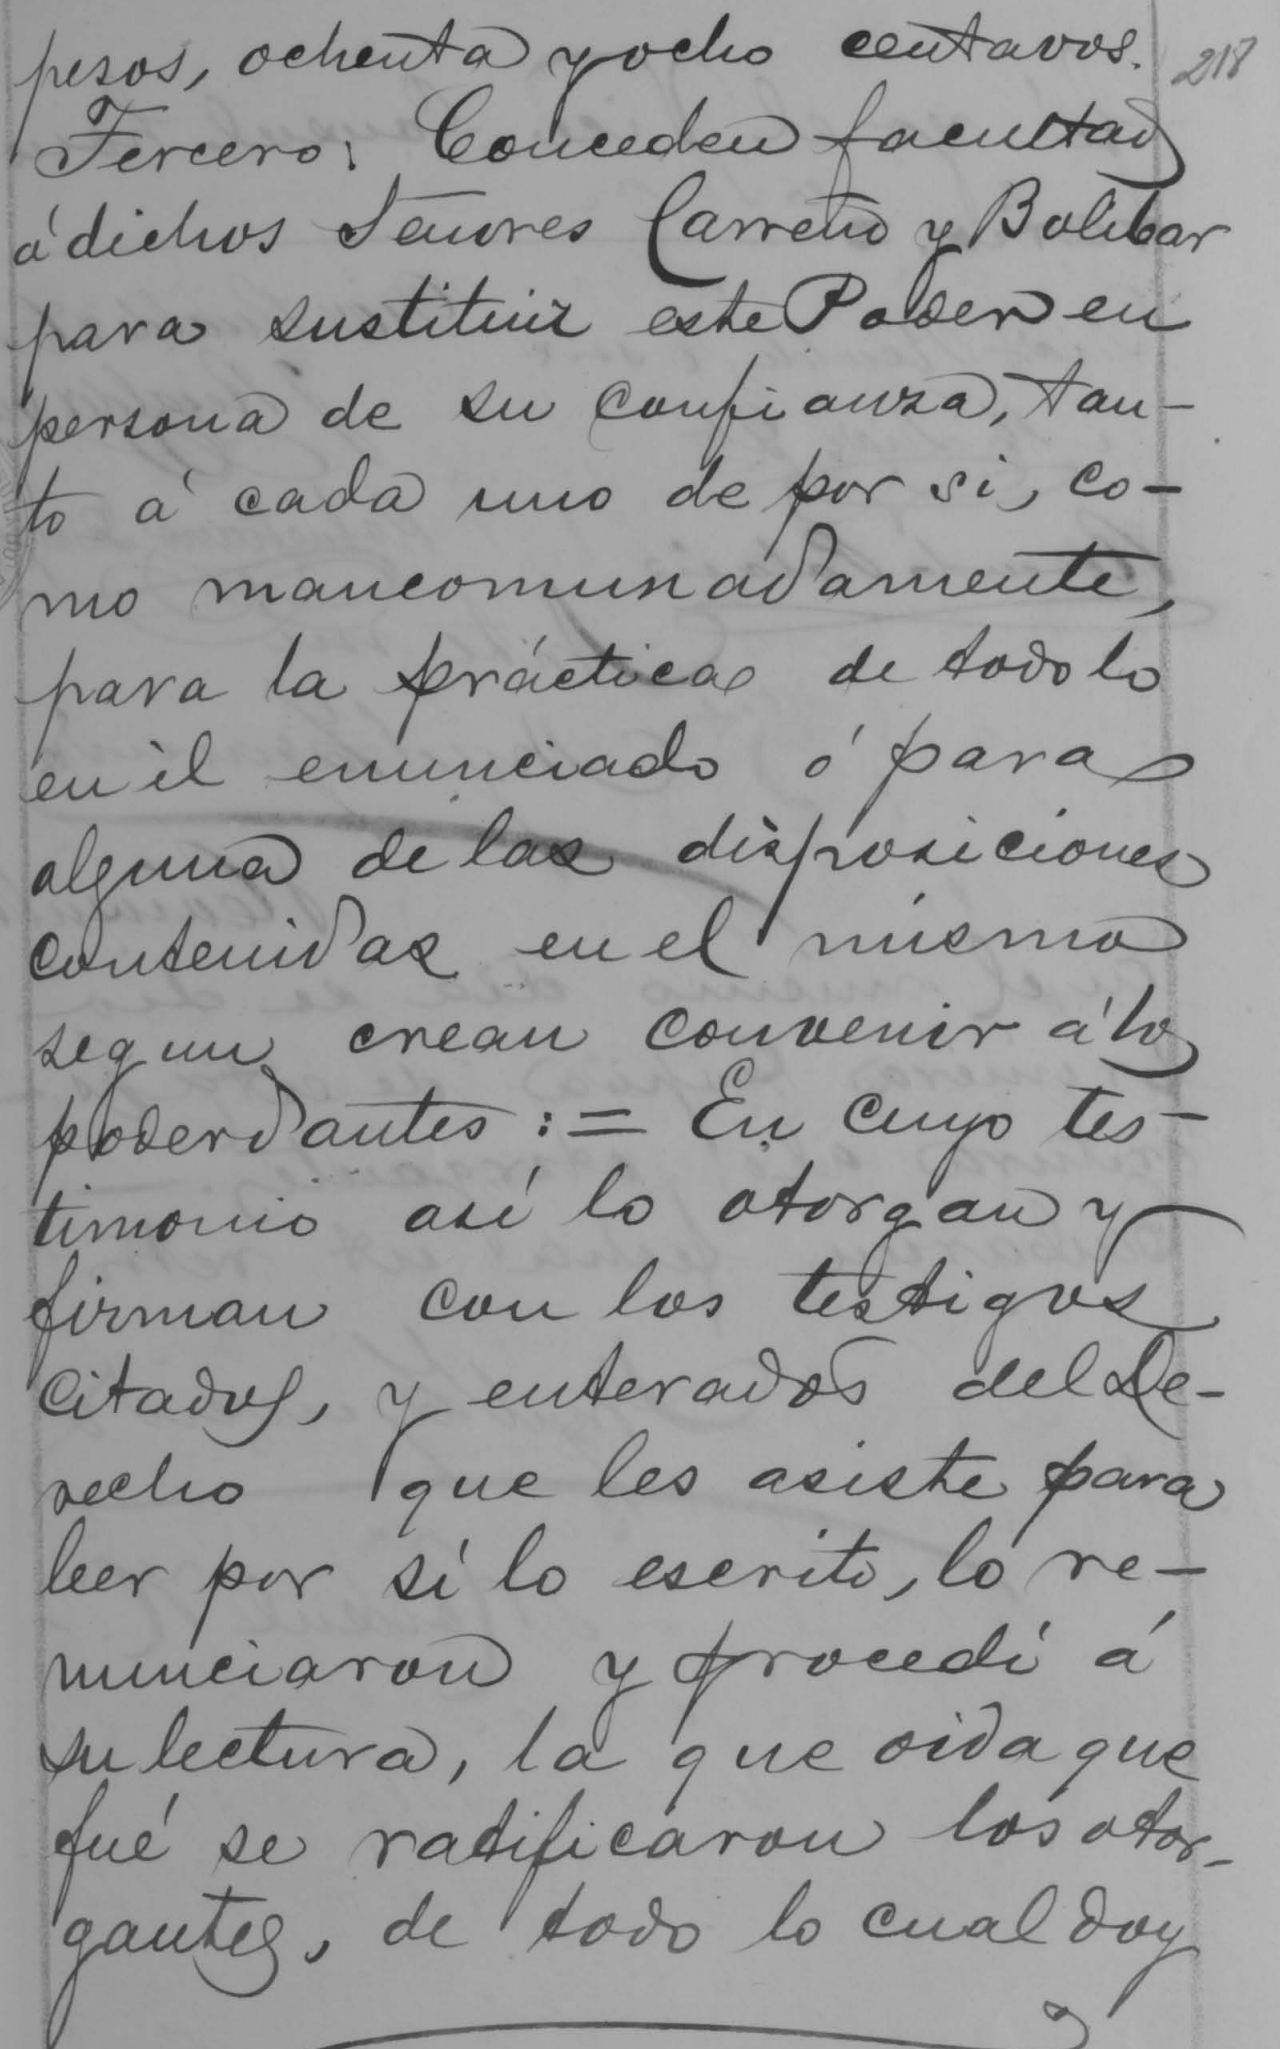 pesos, ochenta y ocho centavos.
218
Tercero: Conceden facultad
á dichos Señores Carreño y Bolibar
para sustituir este Poder en
persona de su confianza, tan-
to á cada uno de por si, co-
mo mancomunadamente,
para la práctica de todo lo
en él enunciado ó para
alguna de las disposiciones
contenidas en el mismo
segun crean convenir á los
poderdantes := En cuyo tes-
timonio así lo otorgan y
firman con los testigos
citados, y enterados del De-
recho que les asiste para
leer por sí lo escrito, lo re-
nunciaron y procedí á
su lectura, la que oida que
fué se ratificaron los otor-
gantes, de todo lo cual doy